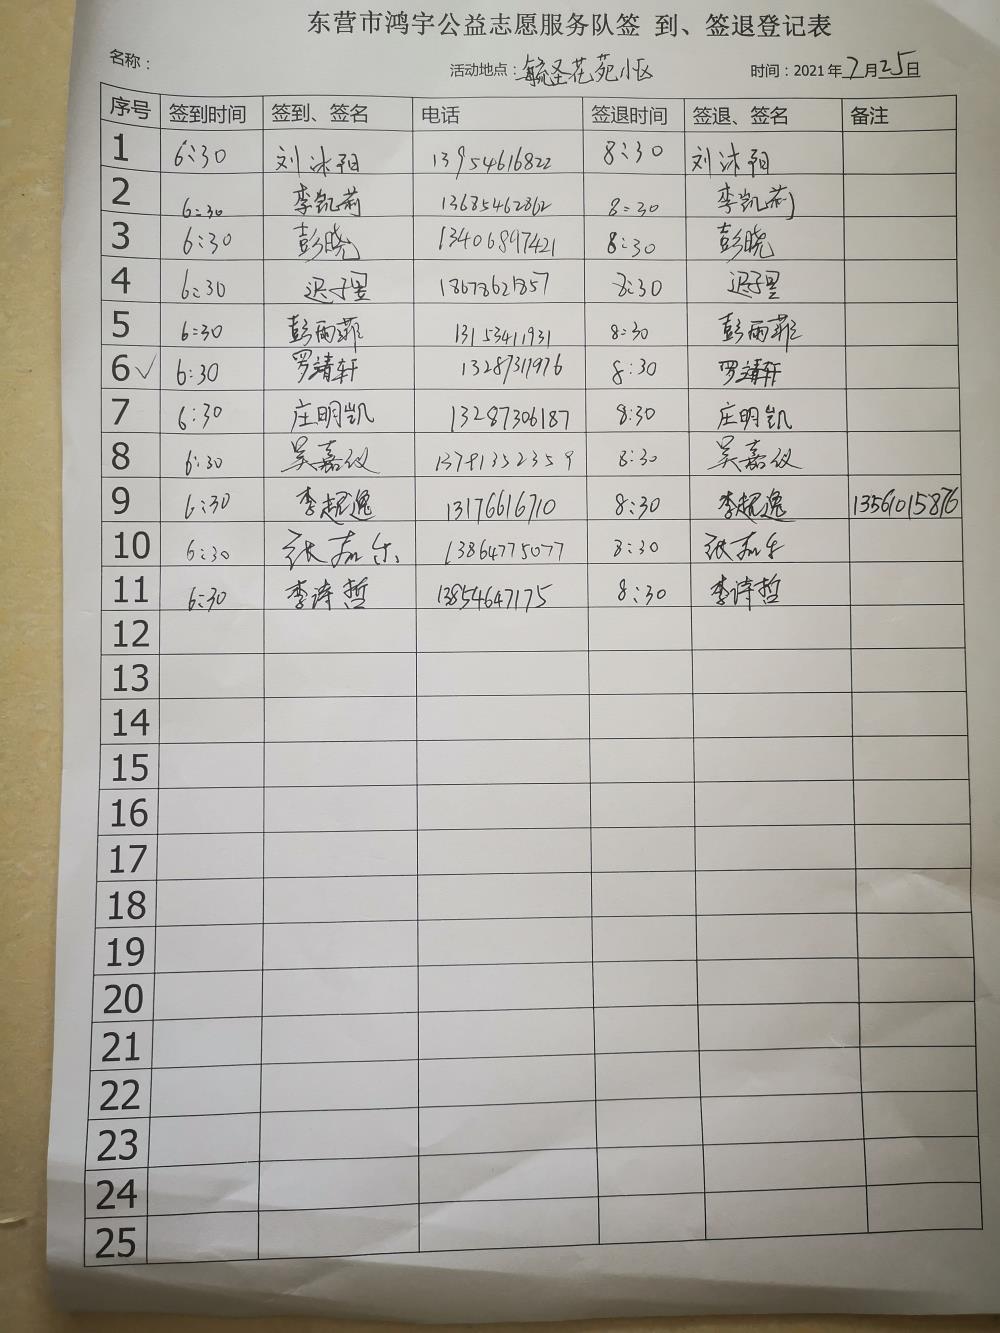 东营市鸿宇公益志愿服务队签 到、签退登记表
名称： 活动地点：毓圣花苑小区 时间：2021年7月25日
序号 签到时间 签到、签名 电话 签退时间 签退、签名 备注
1 6:30 刘沐阳 13954616822 8:30 刘沐阳
2 6:30 李凯莉 13685462862 8:30 李凯莉
3 6:30 彭晓 13406897421 8:30 彭晓
4 6:30 迟子昱 18678621857 8:30 迟子昱
5 6:30 彭雨菲 13153411931 8:30 彭雨菲
6✓ 6:30 罗靖轩 13287311976 8:30 罗靖轩
7 6:30 庄明凯 13287306187 8:30 庄明凯
8 6:30 吴嘉仪 13791352359 8:30 吴嘉仪
9 6:30 李超逸 13176616710 8:30 李超逸 13561015876
10 6:30 张嘉乐 13864775077 8:30 张嘉乐
11 6:30 李诗哲 13854647175 8:30 李诗哲
12
13
14
15
16
17
18
19
20
21
22
23
24
25